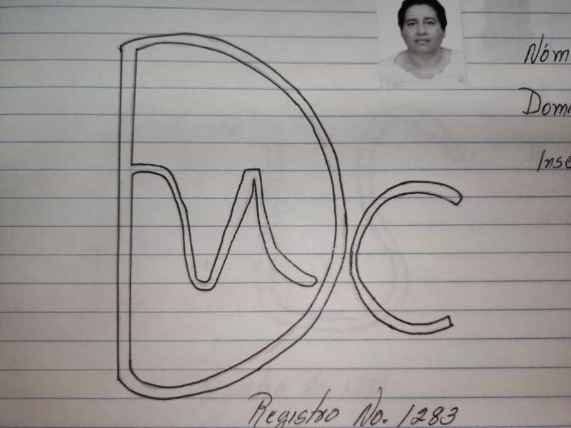 Nóm
Dom
Inse
D u C
Registro No. 1283